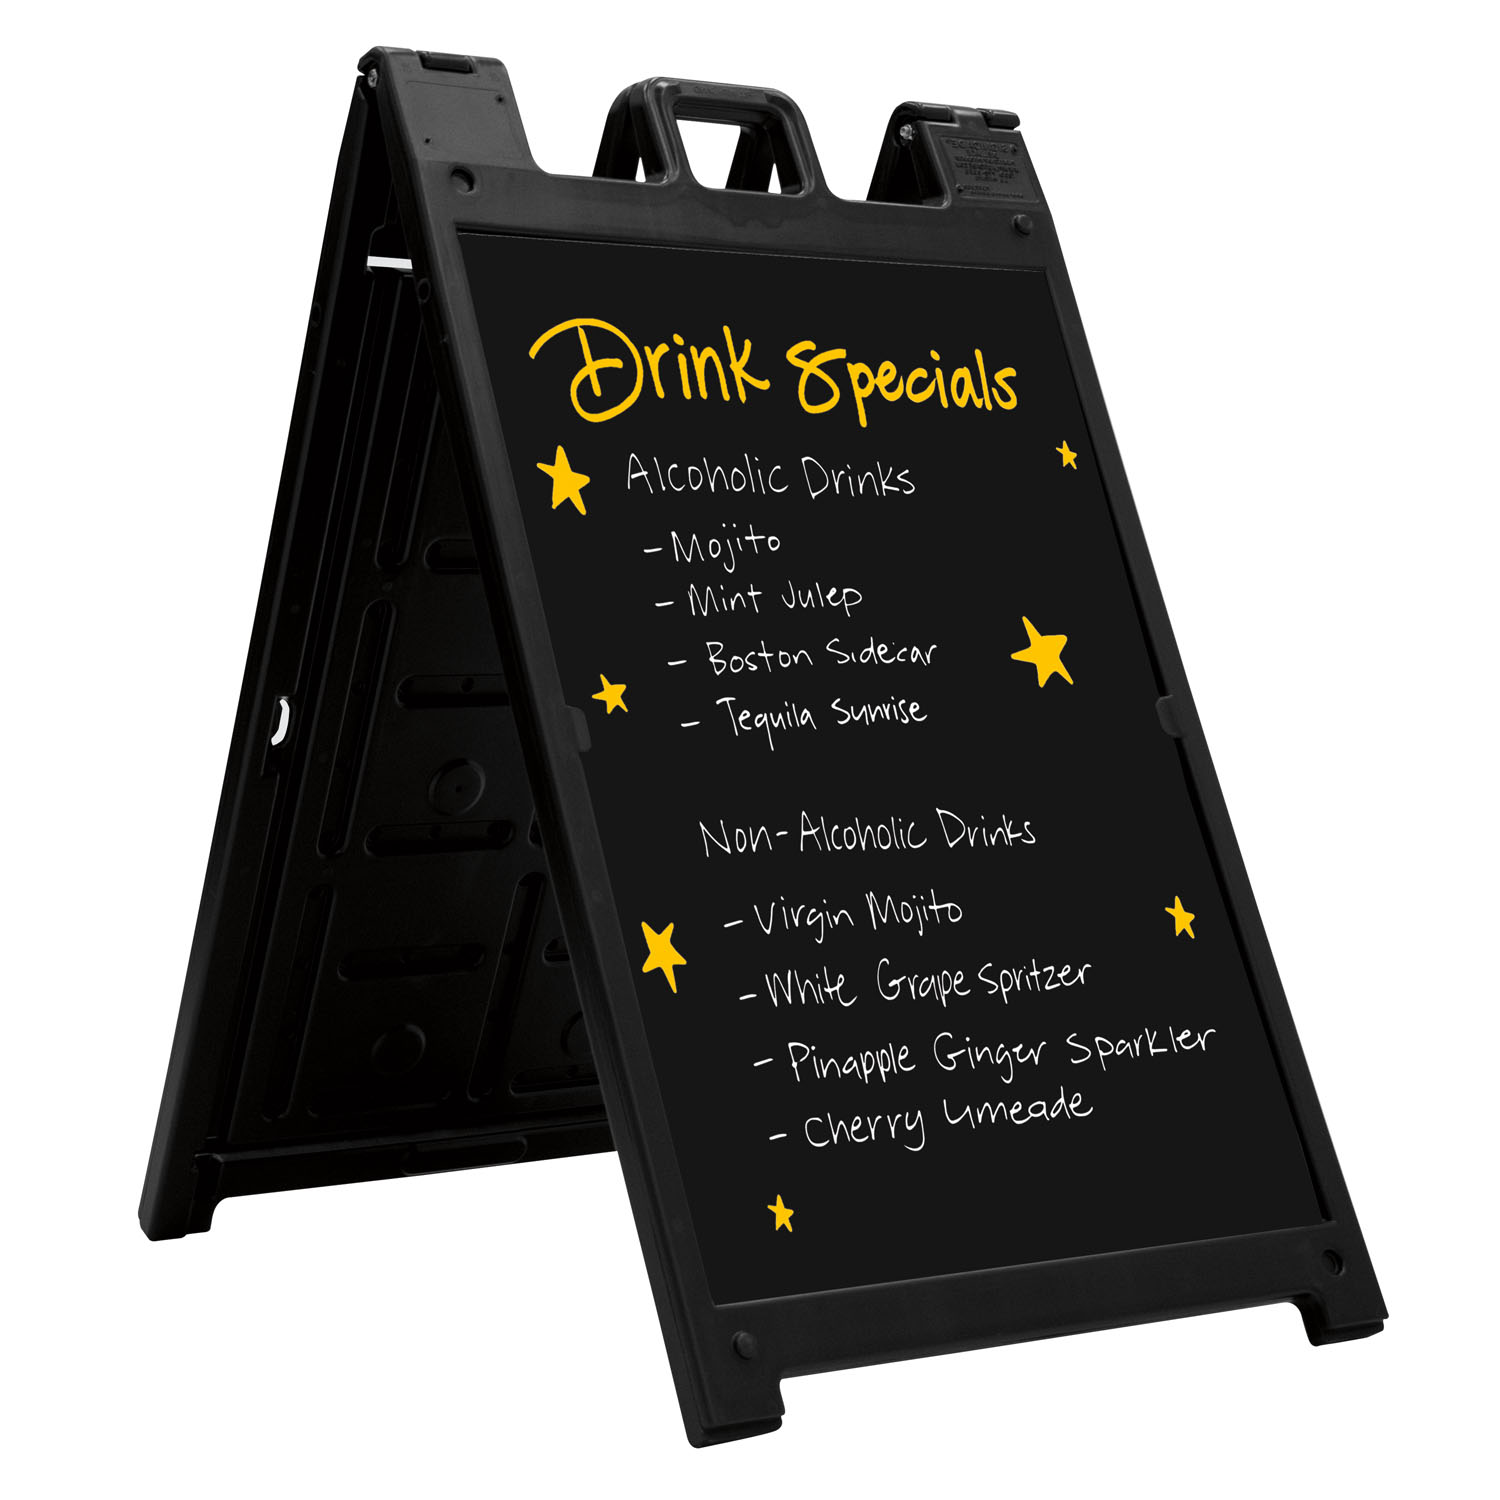 Drink Specials
Alcoholic Drinks
- Mojito
- Mint Julep
- Boston Sidecar
- Tequila Sunrise
Non-Alcoholic Drinks
- Virgin Mojito
- White Grape Spritzer
- Pinapple Ginger Sparkler
- Cherry Limeade